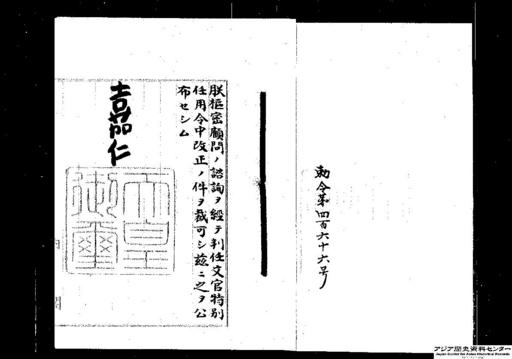 勅令第四百六十六号
朕枢密顧問ノ諮詢ヲ経テ判任文官特別
任用令中改正ノ件ヲ裁可シ茲ニ之ヲ公
布セシム
嘉仁
天皇
御璽
アジア歴史資料センター
Japan Center for Asian Historical Records